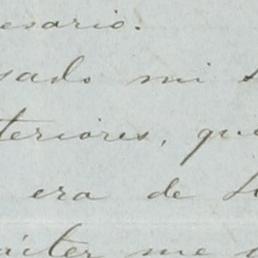 esario.
sado mi s
teriores, que
era de
ácter me